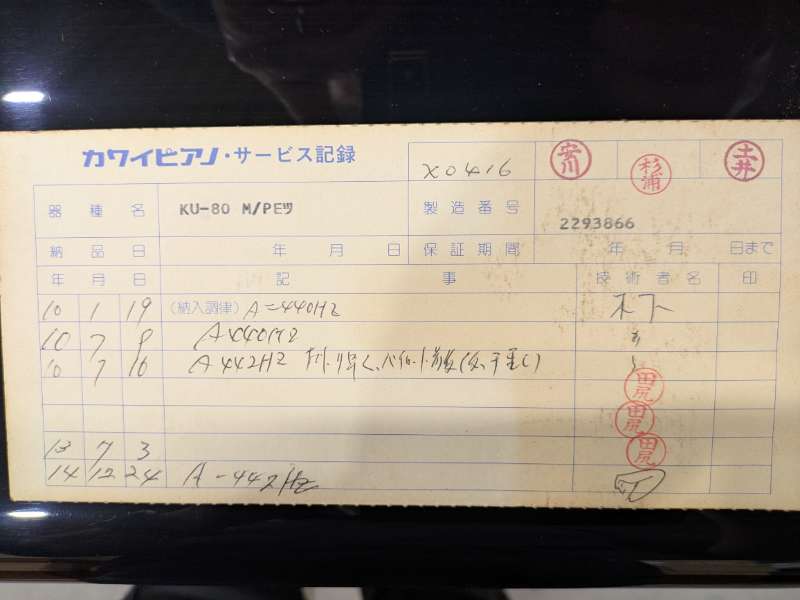 カワイピアノ・サービス記録
X0416 安川 杉浦 土井
器種名 KU-80 M/PEツ 製造番号 2293866
納品日 年 月 日 保証期間 年 月 日まで
年 月 日 記事 技術者名 印
10 1 19 (納入調律) A=440HZ 木下
10 7 9 A 440HZ 〃
10 7 16 A 442HZ
田尻
田尻
13 7 3 田尻
14 12 24 A-442HZ